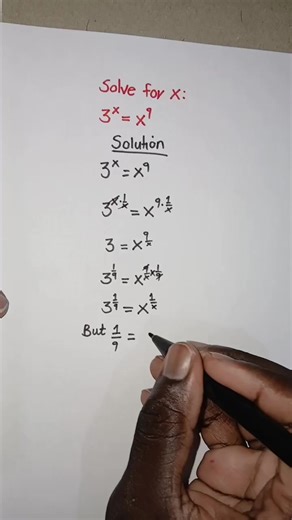 Solve for x:
3^x = x^9
Solution
3^x = x^9
3^(x·1/x) = x^(9·1/x)
3 = x^(9/x)
3^(1/9) = x^(9/x × 1/9)
3^(1/9) = x^(1/x)
But 1/9 =